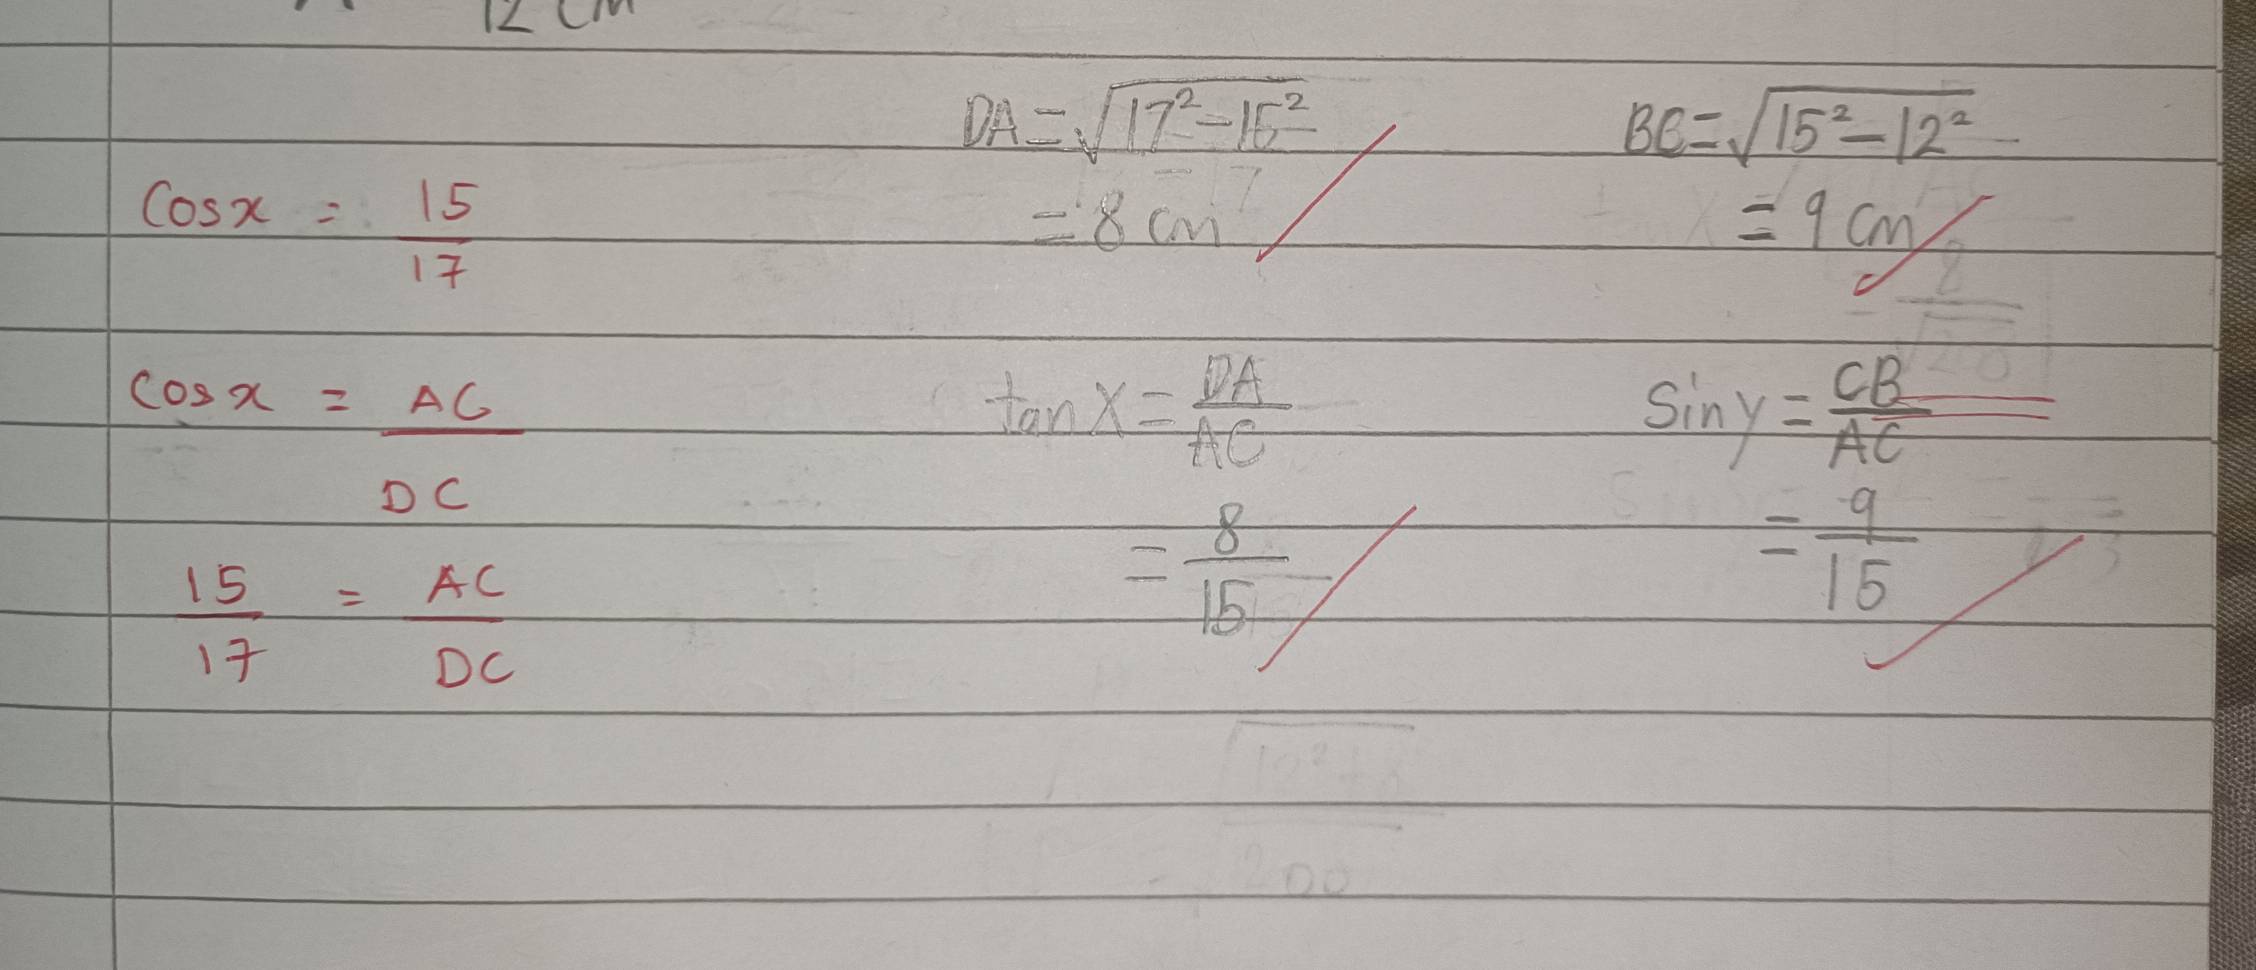 12 cm
DA = √17² - 15²
= 8 cm
BC = √15² - 12²
= 9 cm
Cos x = 15/17
Cos x = AC/DC
15/17 = AC/DC
tan X = DA/AC
= 8/15
Sin y = CB/AC
= 9/15